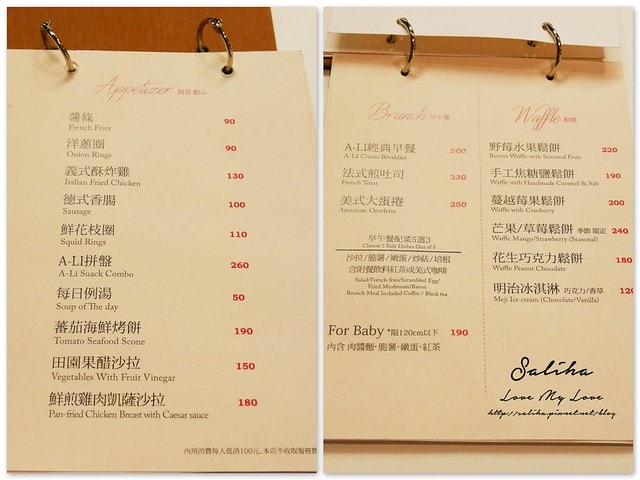 Appetizer 精緻點心
薯條
French Fries 90
洋蔥圈
Onion Rings 90
義式酥炸雞
Italian Fried Chicken 130
德式香腸
Sausage 100
鮮花枝圈
Squid Rings 110
A-LI拼盤
A-Li Snack Combo 260
每日例湯
Soup of The day 50
蕃茄海鮮烤餅
Tomato Seafood Scone 190
田園果醋沙拉
Vegetables With Fruit Vinegar 150
鮮煎雞肉凱薩沙拉
Pan-fried Chicken Breast with Caesar sauce 180
內用消費每人低消100元、本店不收取服務費
Brunch 早午餐
A-LI經典早餐 260
A-LI Classic Breakfast
法式煎吐司 230
French Toast
美式大蛋捲 250
American Omelette
早午餐配菜5選3
Choose 3 Side Dishes Out of 5
沙拉/脆薯/嫩蛋/炒菇/培根
含附餐飲料紅茶或美式咖啡
Salad/French fries/Scrambled Egg/
Fried Mushroom/Bacon
Brunch Meal Included Coffee / Black tea
For Baby *限120cm以下 190
內含 肉醬麵·脆薯·嫩蛋·紅茶
Waffle 鬆餅
野莓水果鬆餅 220
Berries Waffle with Seasonal Fruit
手工焦糖鹽鬆餅 190
Waffle with Handmade Caramel & Salt
蔓越莓果鬆餅 200
Waffle with Cranberry
芒果/草莓鬆餅 季節 限定 240
Waffle Mango/Strawberry (Seasonal)
花生巧克力鬆餅 180
Waffle Peanut Chocolate
明治冰淇淋 巧克力/香草 120
Meji Ice cream (Chocolate/Vanilla)
Saliha
Love My Love
http://saliha.pixnet.net/blog